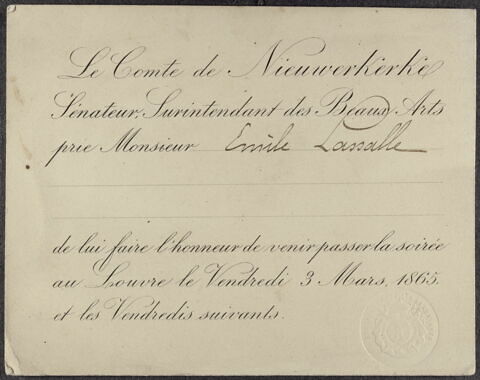 Le Comte de Nieuwerkerke
Sénateur, Surintendant des Beaux Arts
prie Monsieur Emile Lassalle
de lui faire l'honneur de venir passer la soirée
au Louvre le Vendredi 3 Mars, 1865.
et les Vendredis suivants.